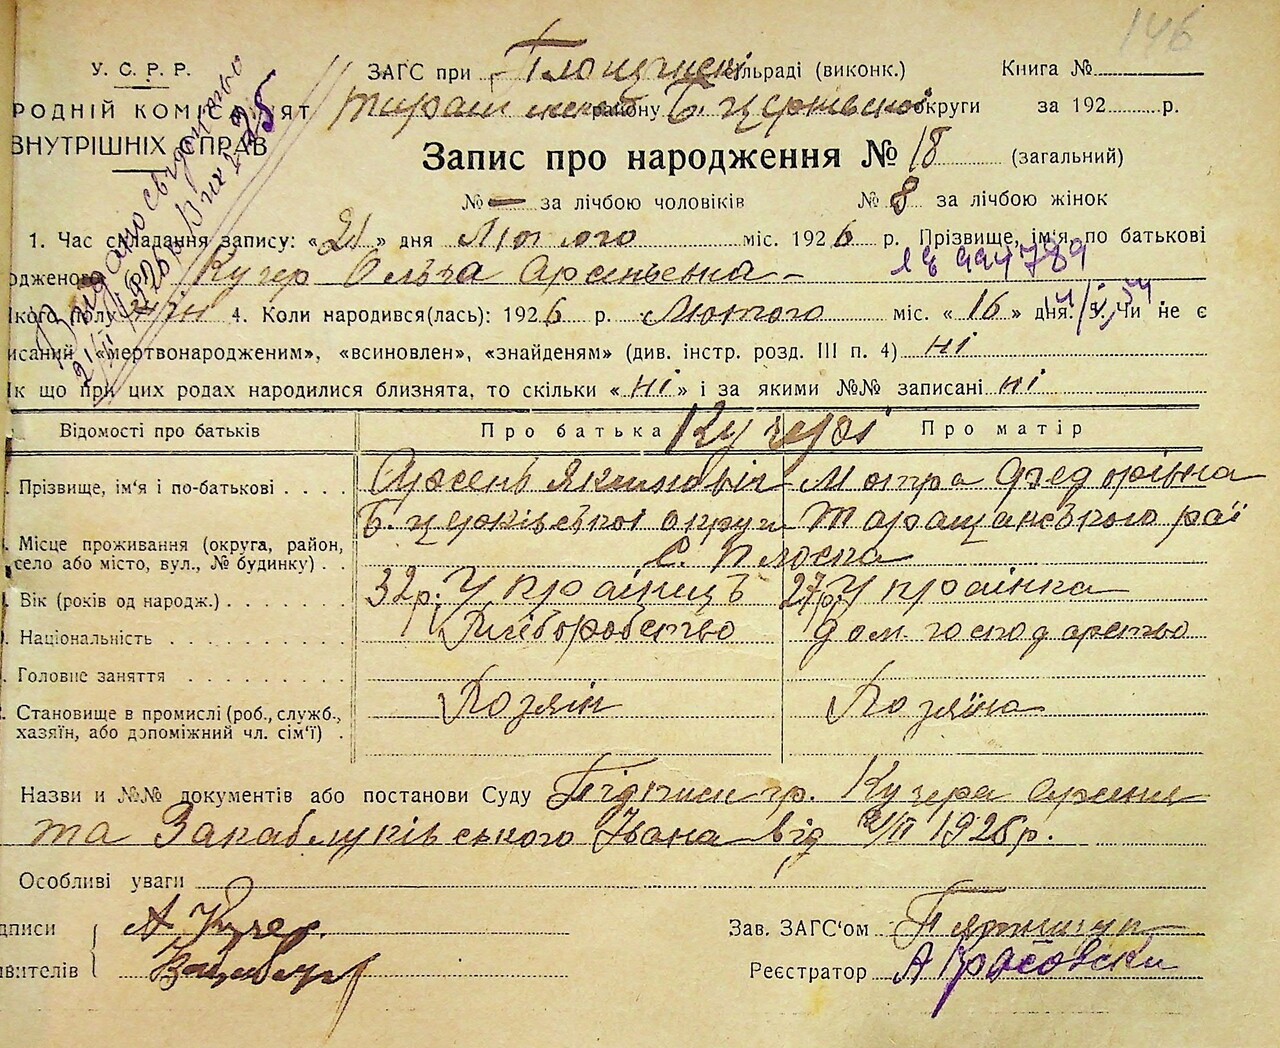 146
У. С. Р. Р. ЗАГС при Площанскі сільраді (виконк.) Книга №
РОДНІЙ КОМІСАРІЯТ району Б церківської округи за 192 р.
ВНУТРІШНІХ СПРАВ
Запис про народження № 18 (загальний)
№ — за лічбою чоловіків № 8 за лічбою жінок
Видано свідоцтво
1. Час складання запису: « 21 » дня Лютого міс. 1926 р. Прізвище, ім'я, по батькові
одженого Кучер Ольга Арсеньевна —
якого полу жін 4. Коли народився(лась): 1926 р. Лютого міс. « 16 » дня. 5. Чи не є
исаний «мертвонародженим», «всиновлен», «знайденям» (див. інстр. розд. III п. 4) ні
Як що при цих родах народилися близнята, то скільки « ні » і за якими №№ записані ні
Відомості про батьків Про батька Кучері Про матір
Прізвище, ім'я і по-батькові Арсень Якимовіч Мотра Федорівна
Б. церківської округи Таращанського раї
Місце проживання (округа, район,
село або місто, вул., № будинку) с. Плоска
Вік (років од народж.) 32 р. Українець 27 р. Українка
Національність Хліборобство дом. господарство
Головне заняття
Становище в промислі (роб., служб., Хозяін Хозяїна
хазяїн, або допоміжний чл. сім'ї)
Назви и №№ документів або постанови Суду Підписи гр. Кучера Арсеня
та Закаблуківського Івана від 21/II 1926 р.
Особливі уваги
дписи А Кучер. Зав. ЗАГС'ом
явителів Реєстратор А Красовски